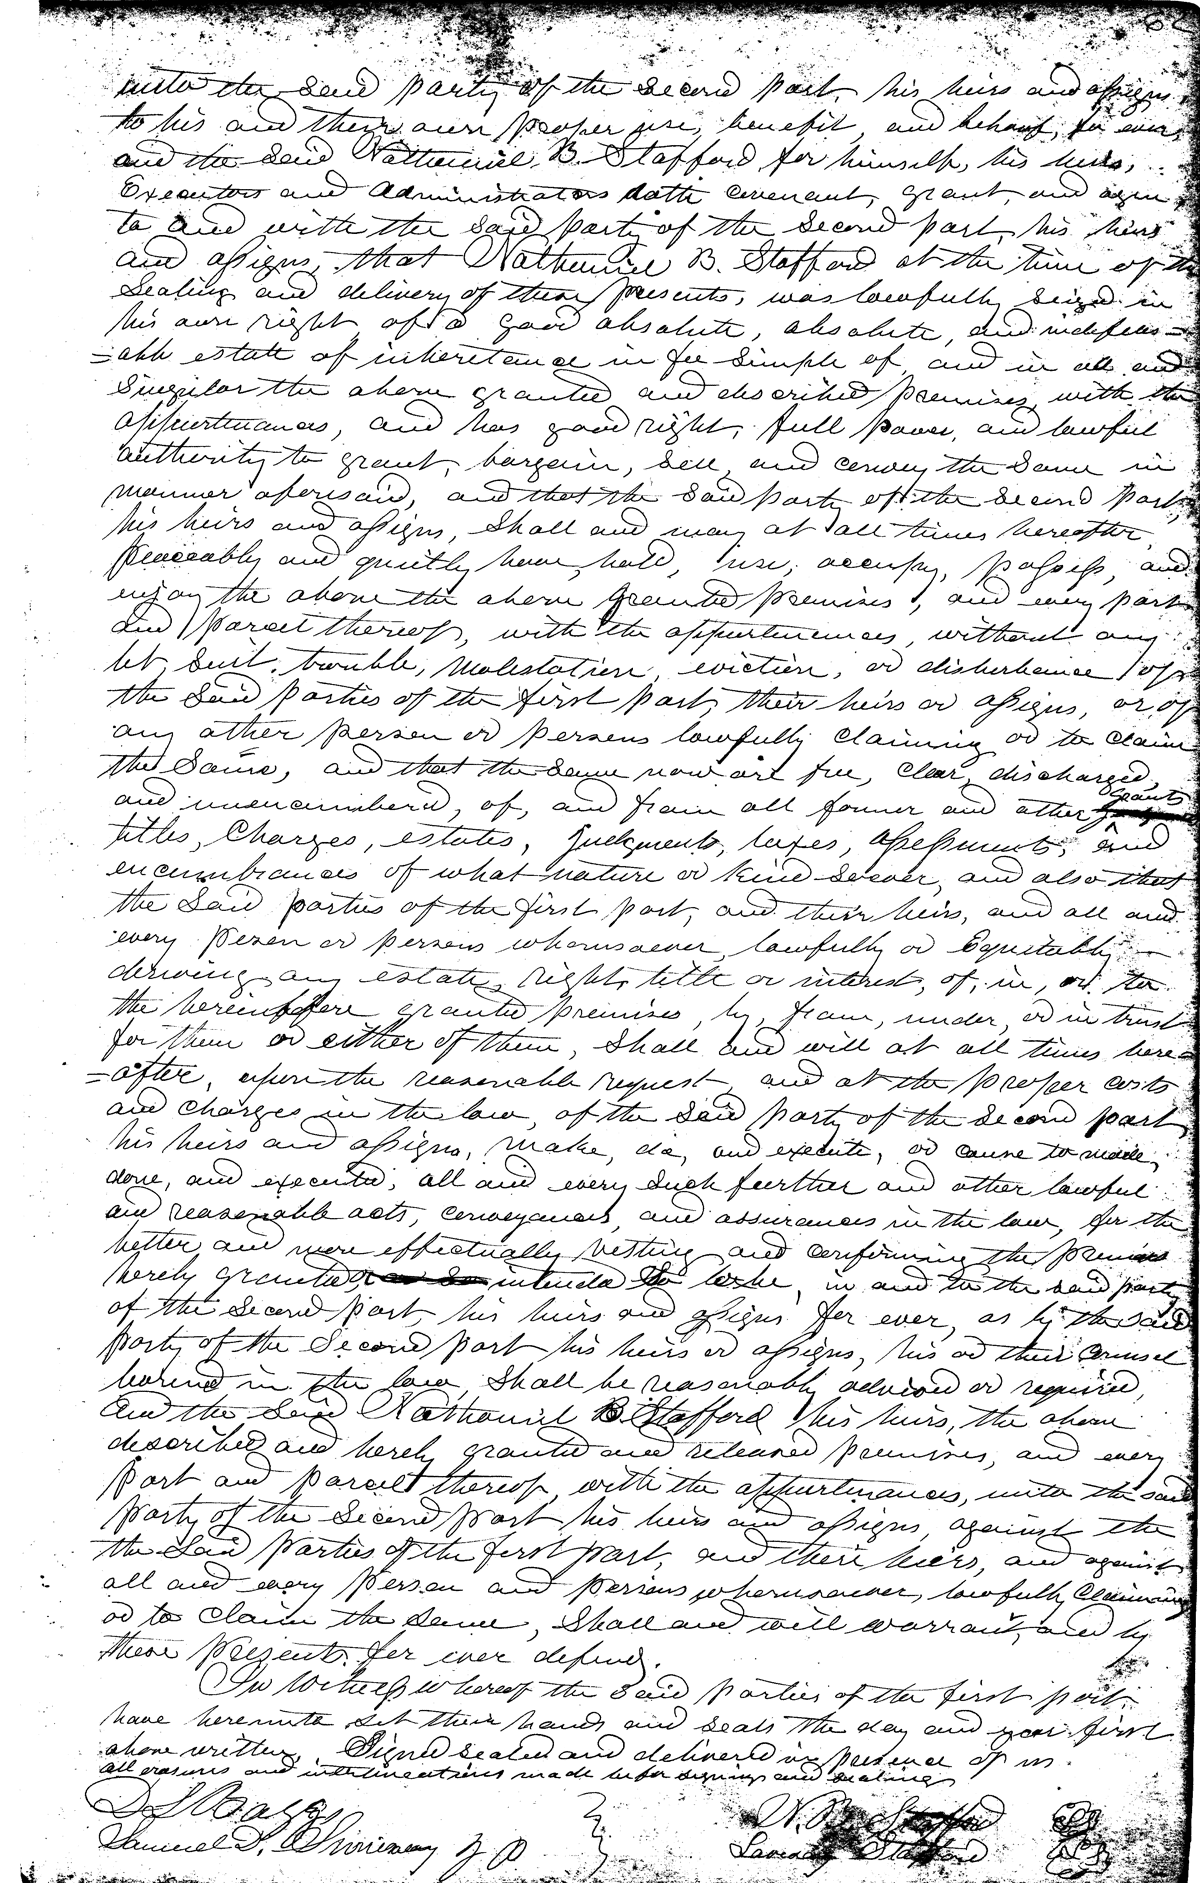 unto the said party of the second part, his heirs and assigns
to his and their own proper use, benefit, and behoof, for ever,
and the said Nathaniel B. Stafford for himself, his heirs,
Executors and Administrators doth covenant, grant, and agree
to and with the said party of the second part, his heirs
and assigns, that Nathaniel B. Stafford at the time of the
Sealing and delivery of these presents, was lawfully seized in
his own right of a good absolute, absolute, and indefeas=
=able estate of inheretance in fee simple of, and in all and
Singular the above granted and described premises, with the
appurtenances, and has good right, full power, and lawful
authority to grant, bargain, sell, and convey the same in
manner aforesaid, and that the said party of the second part,
his heirs and assigns, shall and may at all times hereafter,
peaceably and quietly have, hold, use, occupy, possess, and
enjoy the above the above granted premises, and every part
and parcel thereof, with the appurtenances, without any
let, suit, trouble, molestation, eviction, or disturbance of
the said parties of the first part, their heirs or assigns, or of
any other person or persons lawfully claiming or to claim
the same, and that the same now are free, clear, discharged,
and unencumbered, of, and from all former and other grants
titles, charges, estates, judgments, taxes, assessments, and
encumbrances of what nature or kind soever, and also that
the said parties of the first part, and their heirs, and all and
every person or persons whomsoever, lawfully or Equitably
deriving any estate, right, title or interest, of, in, or to
the hereinbefore granted premises, by, from, under, or in trust
for them or either of them, shall and will at all times here=
=after, upon the reasonable request, and at the proper costs
and charges in the law, of the said party of the second part
his heirs and assigns, make, do, and execute, or cause to made,
done, and executed, all and every such further and other lawful
and reasonable acts, conveyances, and assurances in the law, for the
better and more effectually vesting and confirming the premises
hereby granted intended to be, in and to the said party
of the second part, his heirs and assigns for ever, as by the said
party of the second part his heirs or assigns, his or their counsel
learned in the law, shall be reasonably advised or required,
And the said Nathaniel B. Stafford his heirs, the above
described and hereby granted and released premises, and every
part and parcel thereof, with the appurtenances, unto the said
party of the second part his heirs and assigns, against the
the said parties of the first part, and their heirs, and against
all and every person and persons whomsoever, lawfully claiming
or to claim the same, shall and will warrant, and by
these presents for ever defend.
In Witness whereof the said parties of the first part
have hereunto set their hands and seals the day and year first
above written. Signed sealed and delivered in presence of us.
all erasures and interlineations made before signing and sealing
Samuel J. J P N. B. Stafford
Stafford